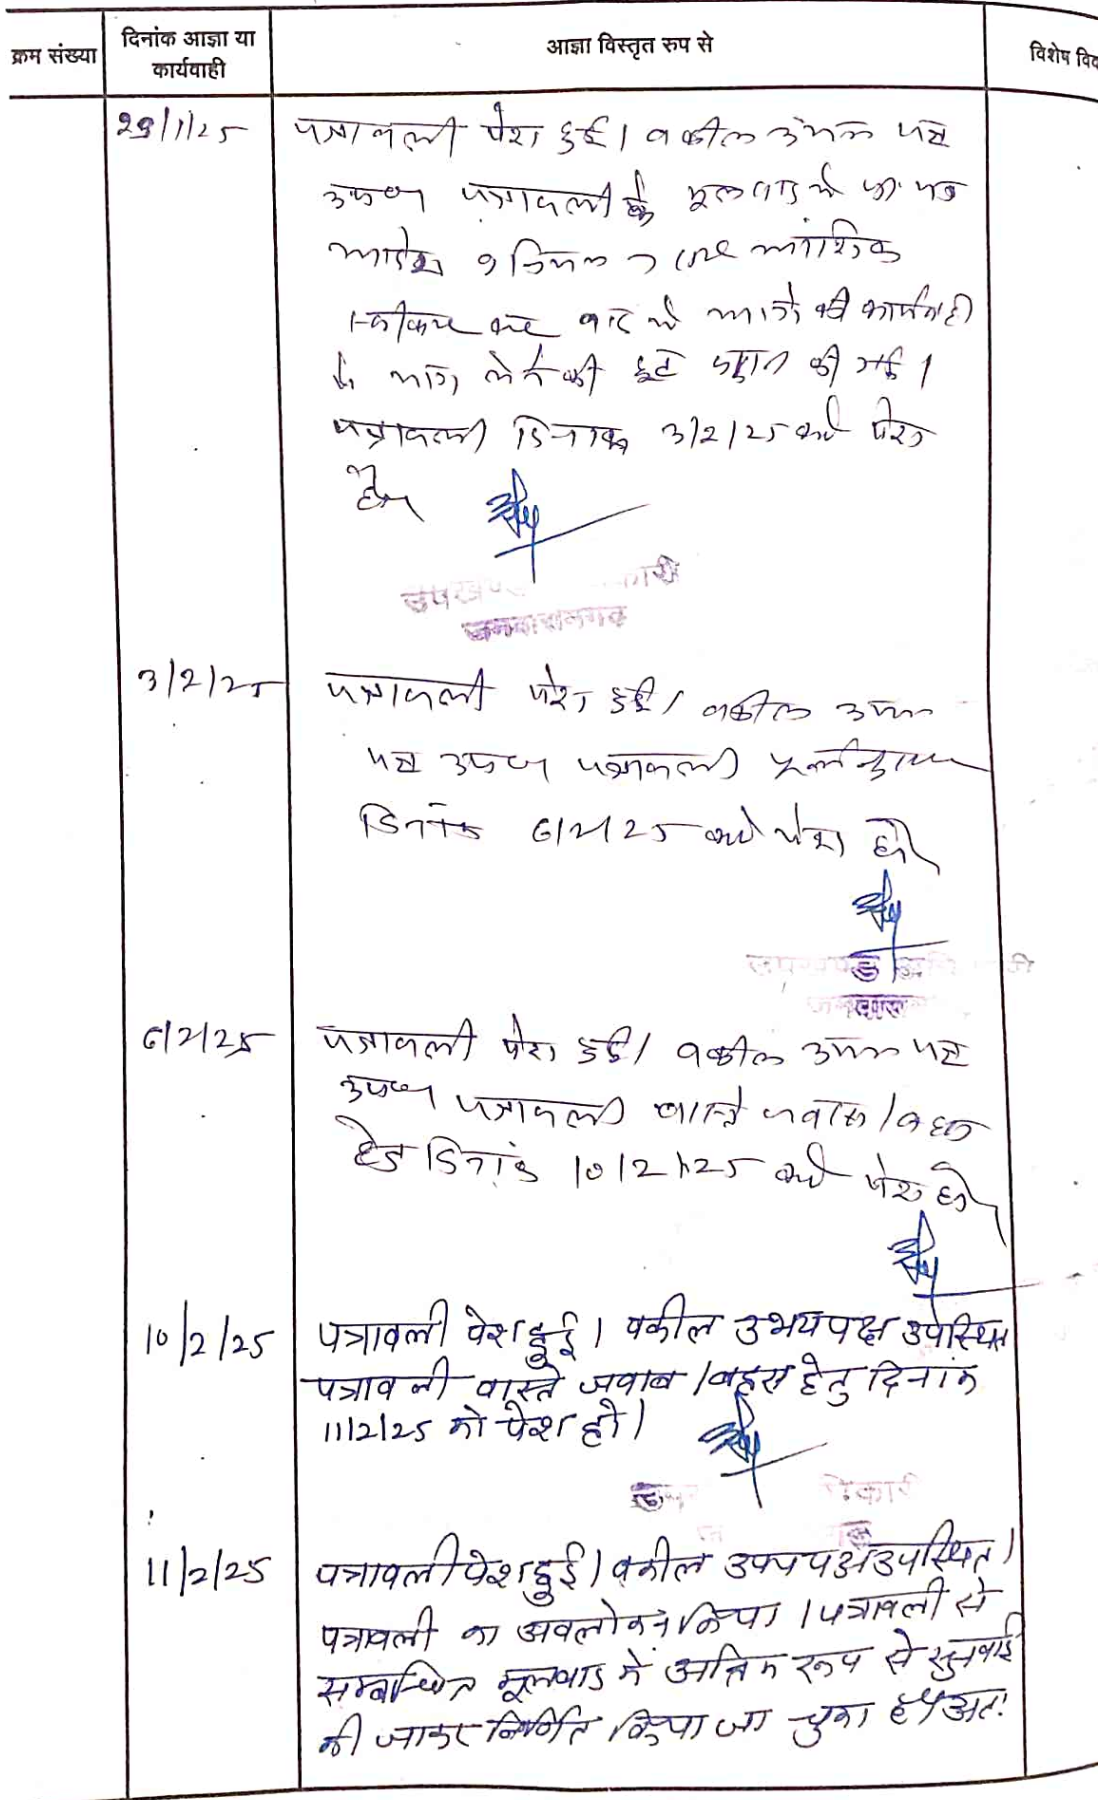 क्रम संख्या
दिनांक आज्ञा या
कार्यवाही
आज्ञा विस्तृत रुप से
विशेष विव
29/1/25
पत्रावली पेश हुई। वकील उभय पक्ष
उपस्थ पत्रावली के मूलवाद में प्रा. पत्र
आदेश 9 नियम 7 आंशिक
स्वीकार कर वाद में आगे की कार्यवाही
में भाग लेने की छूट प्रदान की गई।
पत्रावली दिनांक 3/2/25 को पेश
हो।
उपखण्ड
3/2/25
पत्रावली पेश हुई। वकील उभय
पक्ष उपस्थ पत्रावली पूर्वानुसार
दिनांक 6/2/25 को पेश हो।
उपखण्ड
6/2/25
पत्रावली पेश हुई। वकील उभय पक्ष
उपस्थ पत्रावली वास्ते जवाब/बहस
हेतु दिनांक 10/2/25 को पेश हो।
10/2/25
पत्रावली पेश हुई। वकील उभयपक्ष उपस्थित
पत्रावली वास्ते जवाब/बहस हेतु दिनांक
11/2/25 को पेश हो।
11/2/25
पत्रावली पेश हुई। वकील उभयपक्ष उपस्थित।
पत्रावली का अवलोकन किया। पत्रावली से
सम्बन्धित मूलवाद में अन्तिम रूप से सुनवाई
की जाकर निर्णित किया जा चुका है। अतः